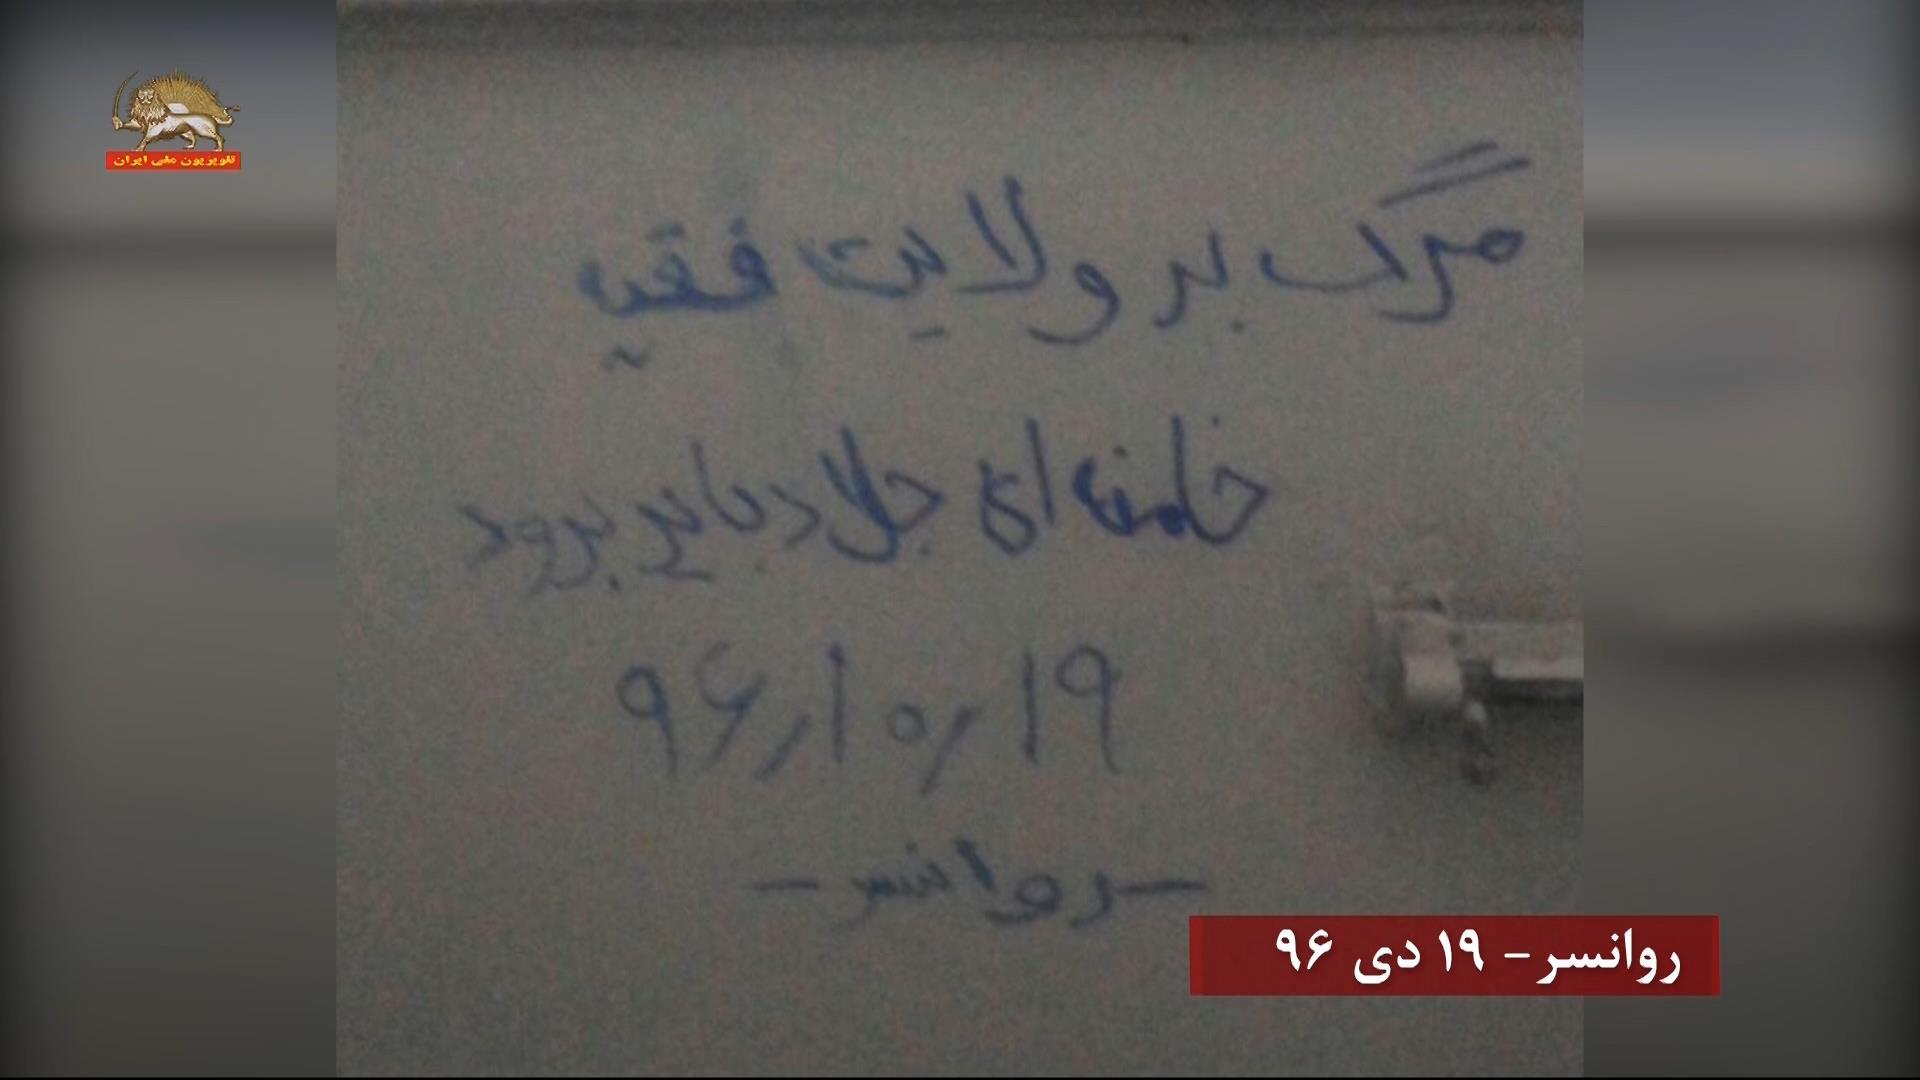 تلویزیون ملی ایران
مرگ بر ولایت فقیه
خامنه ای جلاد باید برود
۹۶/۱۰/۱۹
-روانسر-
روانسر - ۱۹ دی ۹۶